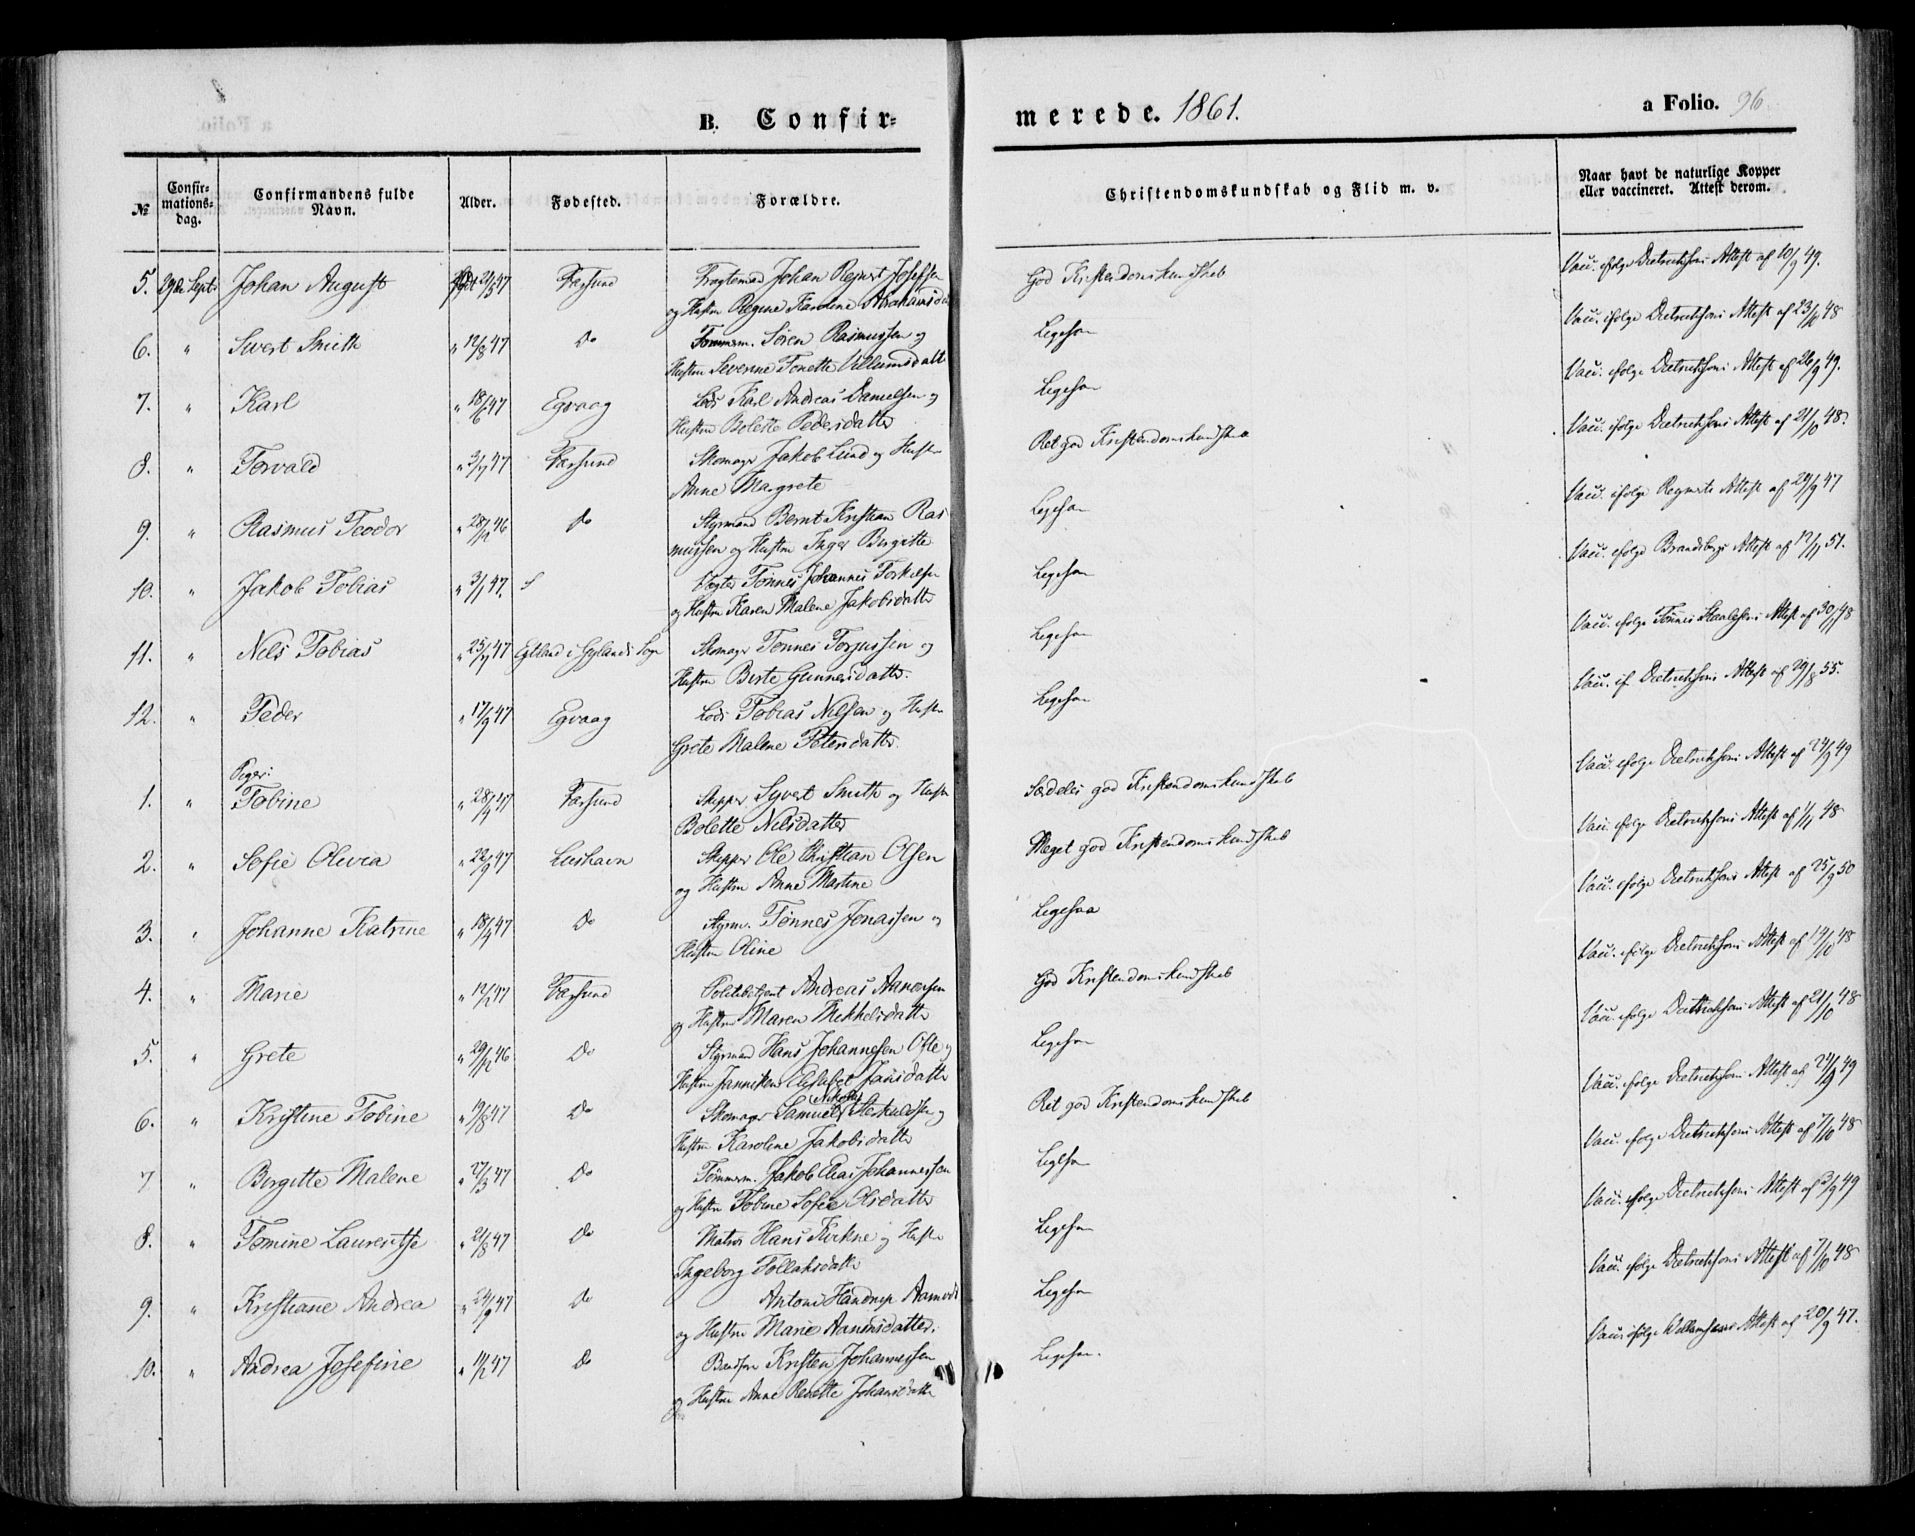 B. Confir= merede. 1861. a Folio. 96.
№ Confir-mations-dag. Confirmandens fulde Navn. Alder. Fødested. Forældre. Christendomskundskab og Flid m. v. Naar havt de naturlige Kopper eller vaccineret. Attest derom.
5. 29de Septr Johan August 21/5 47 Farsund Johan Josefsen God Kristendomskundskab Vacc. ifølge Dietrichsons Attest af 10/9 49.
og Hustru Regine Karoline Abrahamsd
6. " Sivert Smith " 12/8 47 Do Tømmerm. Søren Rasmussen og Ligesaa Vacc. ifølge Dietrichsons Attest af 23/10 48
Hustru Severine Tonette Villumsdatt
7. " Karl " 18/6 47 Egvaag Lods Karl Andreas Danielsen og Ligesaa Vacc. ifølge Dietrichsons Attest af 26/9 49.
Hustru Bolette Pedersdatter
8. " Torvald Farsund Skomager Jakob Lund og Hustru Ret god Kristendomskundskab Vacc. ifølge Dietrichsons Attest af 21/10 48.
Anne Margrete
9. " Rasmus Teodor " 28/12 46 Do Styrmand Bernt Kristian Ras Ligesaa Vacc. ifølge Attest af 29/9 47
mussen og Hustru Inger Birgitte
10. " Jakob Tobias Tønnes Johannes Torkelsen Ligesaa Vacc. ifølge Brandsbergs Attest af 12/11 51.
og Hustru Karen Malene Jakobsdatter
11. " Nils Tobias Gylands Sogn Skomager Tønnes Torjussen og Ligesaa Vacc. ifølge Tønnes Attest af 30/11 48
Hustru Berte Gunnersdatter.
12. " Peder " 17/9 47 Egvaag Lods Tobias Nilsen og Hustru Ligesaa Vacc. if. Dietrichsons Attest af 29/8 55.
Grete Malene Petersdatter.
Piger:
1. " Tobine Farsund Skipper Syvert Smith og Hustru Særdeles god Kristendomskundskab Vacc. ifølge Dietrichsons Attest af 24/9 49
Bolette Nilsdatter
2. " Sofie Olivia " 22/9 47 Lushavn Skipper Ole Christian Olsen Meget god Kristendomskundskab Vacc. ifølge Dietrichsons Attest af 1/11 48
og Hustru Anne Martine
3. " Johanne Katrine Do Styrm. Tønnes Jonassen og Ligesaa Vacc. ifølge Dietrichsons Attest af 25/9 50
Hustru Oline
4. " Marie Farsund Politibetjent Andreas Aanensen God Kristendomskundskab Vacc. ifølge Dietrichsons Attest af 14/10 48
og Hustru Maren Mikkelsdatter
5. " Grete " 29/12 46 Do Styrmand Hans Johannesen Ofte og Ligesaa Vacc. ifølge Dietrichsons Attest af 21/10 48
Hustru Janniken Elisabet Jansdatter
6. " Kristine Tobine " 19/8 47 Do Skomager Samuel Nikolai og Ret god Kristendomskundskab Vacc. ifølge Dietrichsons Attest af 24/9 49
Hustru Karoline Jakobsdatter
7 " Birgitte Malene " 27/3 47 Do Tømmerm. Jakob Elias Johannessen Ligesaa Vacc. ifølge Dietrichsons Attest af 7/10 48
og Hustru Tobine Sofie Olsdatter
8. " Tomine Laurentse " 21/8 47 Do Matros Hans og Hustru Ligesaa Vacc. ifølge Dietrichsons Attest af 49
Ingeborg Tollaksdatter
9. " Kristiane Andrea " 24/9 47 Do Antoni Ligesaa Vacc. ifølge Dietrichsons Attest af 7/10 48
og Hustru Marie Aanensdatter.
10. " Andrea Josefine Do Kristen Johannessen Ligesaa. Vacc. ifølge Attest af 20/9 47.
og Hustru Anne Johansdatter